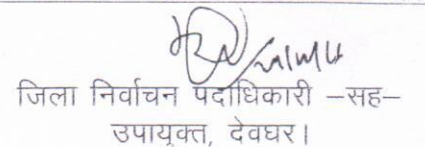 जिला निर्वाचन पदाधिकारी –सह–
उपायुक्त, देवघर।